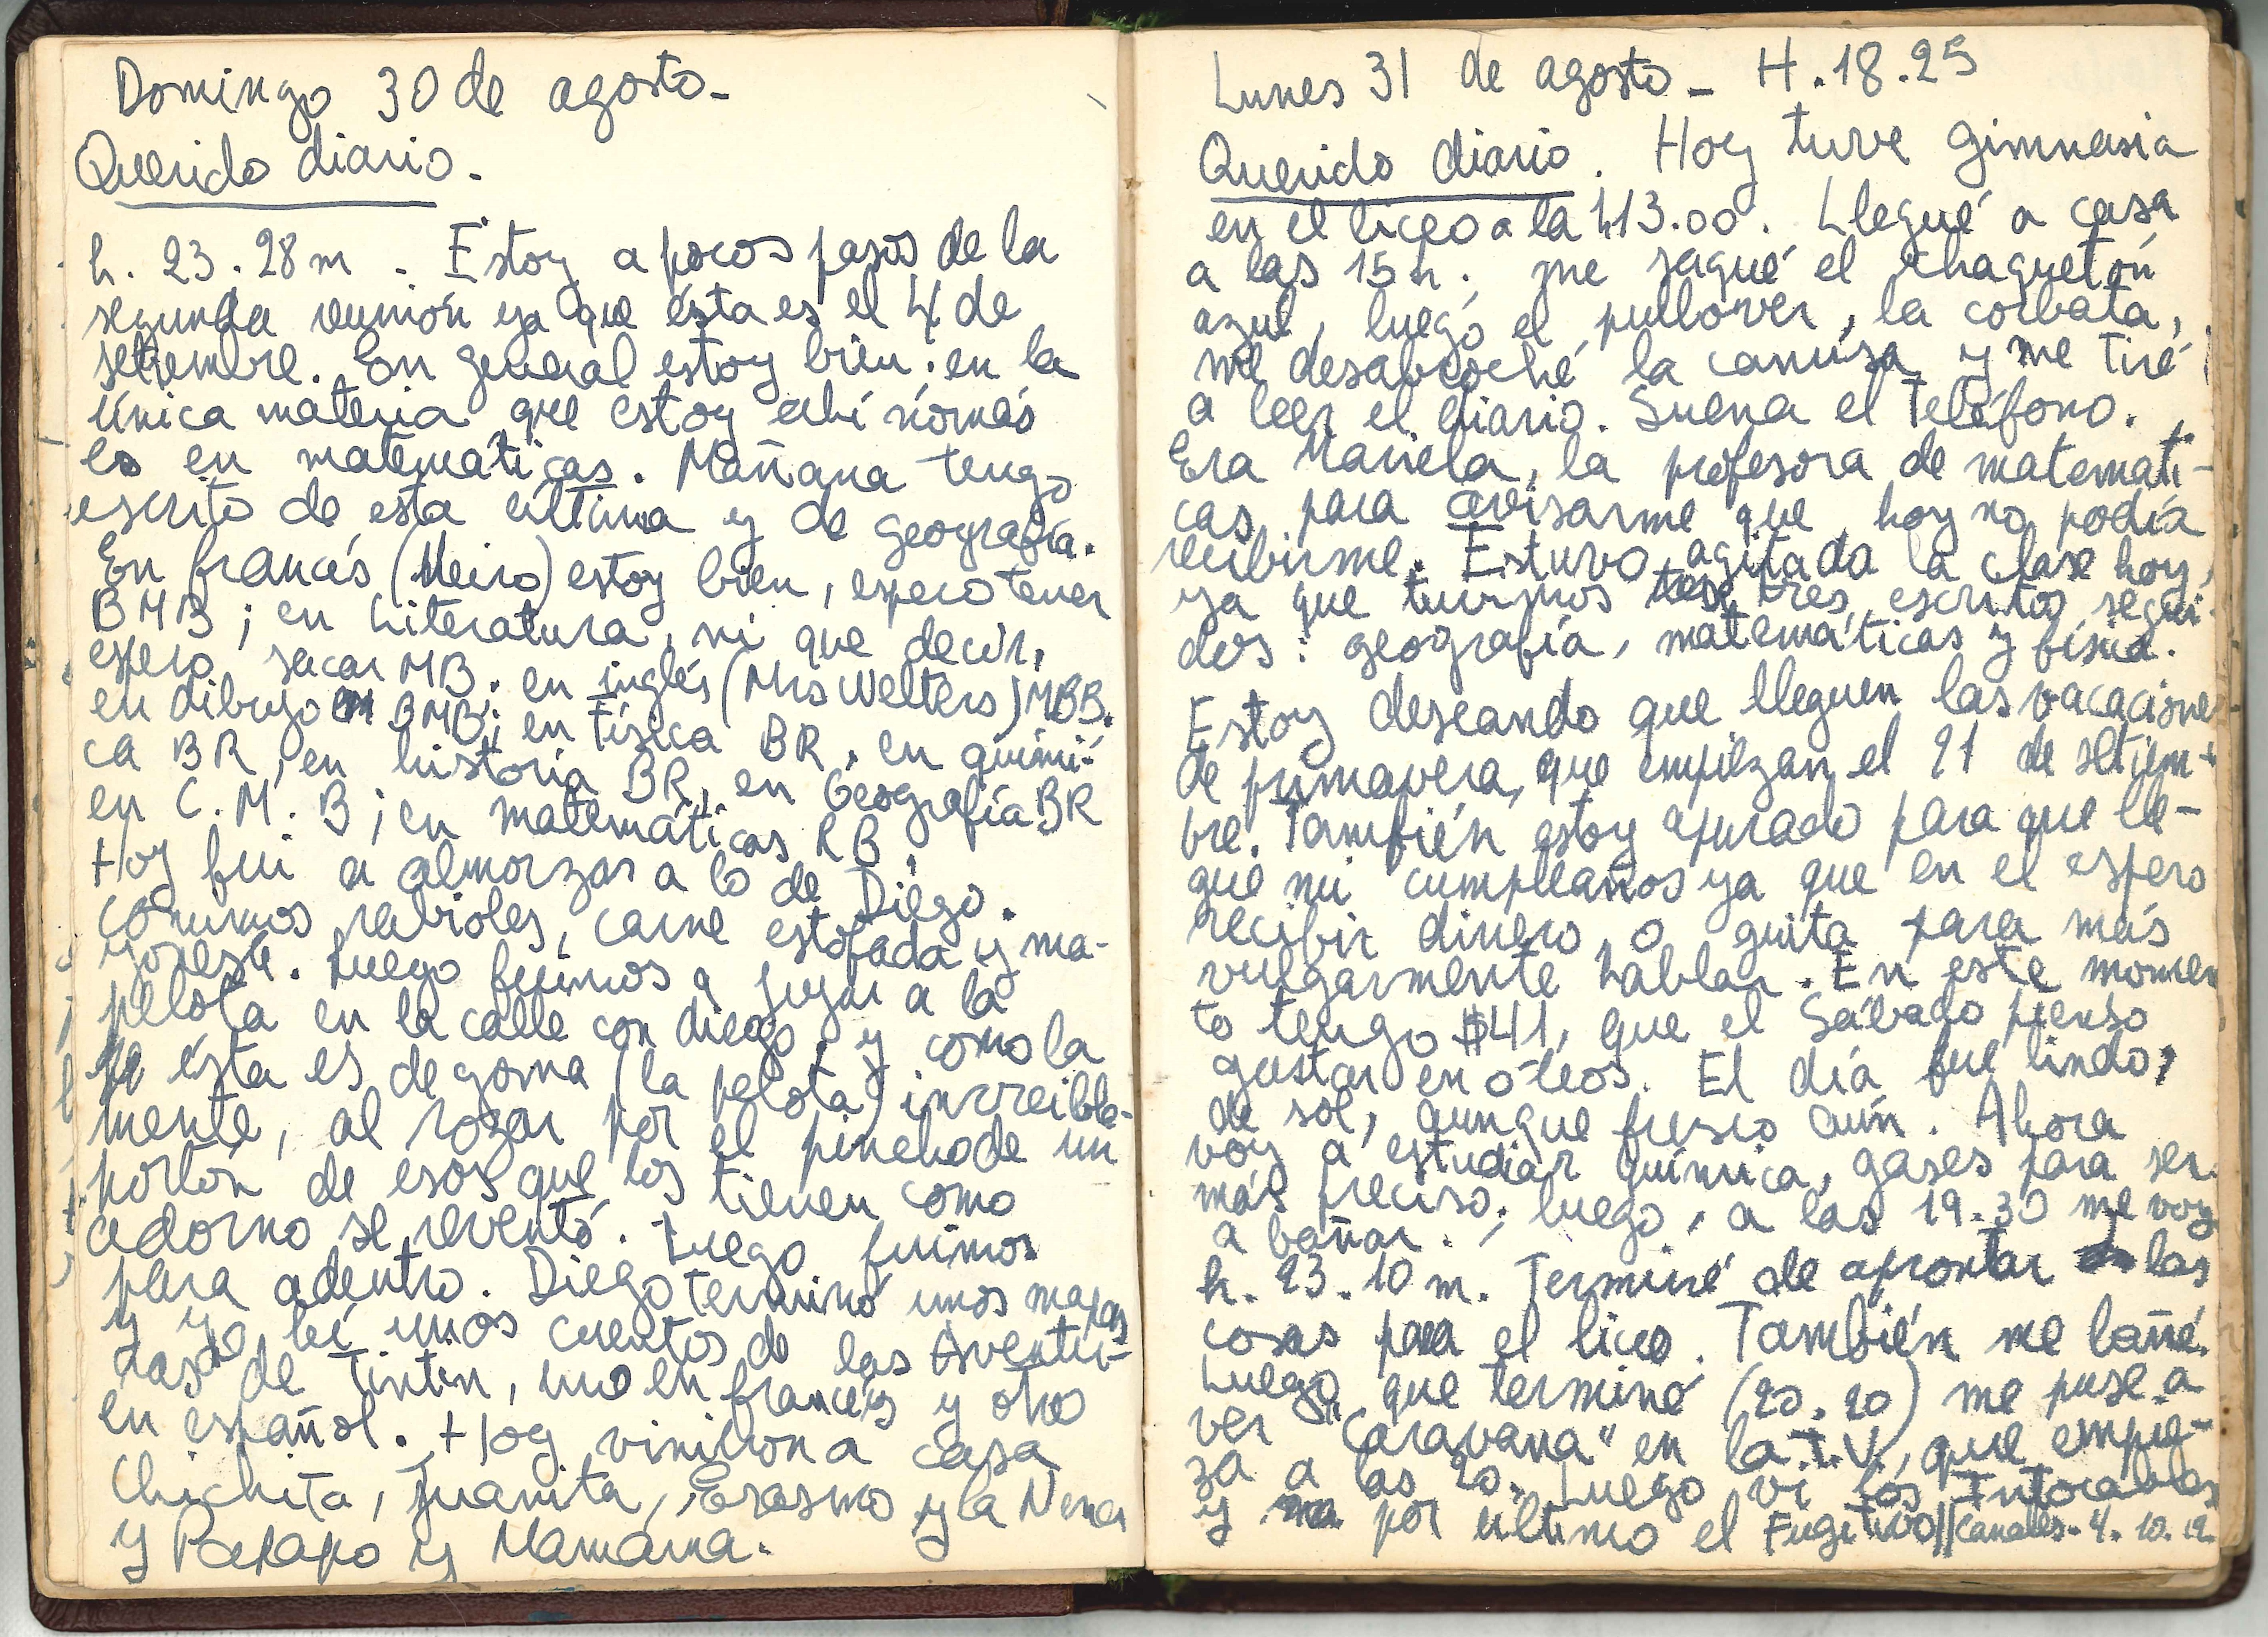 Domingo 30 de agosto -
Querido diario.
h. 23.28 m. Estoy a pocos pasos de la
segunda reunión ya que ésta es el 4 de
setiembre. En general estoy bien; en la
única materia que estoy ahí nomás
es en matemáticas. Mañana tengo
escrito de esta última y de geografía.
En francés (Meiro) estoy bien, espero tener
BMB; en Literatura, ni que decir,
espero sacar MB; en inglés (Mrs Welters) MBB.
en dibujo BMB; en Física BR, en quími-
ca BR, en historia BR, en Geografía BR
en C. M. B; en matemáticas RB.
Hoy fui a almorzar a lo de Diego.
comimos rabioles, carne estofada y ma-
yonesa. Luego fuimos a jugar a la
pelota en la calle con diego, y como la
ésta es de goma (la pelota) increible-
mente, al rozar por el pinchode un
portón de esos que los tienen como
adorno se reventó. Luego fuimos
para adentro. Diego terminó unos mapas
y yo leí unos cuentos de las Aventu-
ras de Tintín, uno en francés y otro
en español. Hoy vinieron a casa
Chichita, Juanita, Erasmo y la Nena
y Papapo y Mamama.
Lunes 31 de agosto - H. 18.25
Querido diario. Hoy tuve gimnasia
en el liceo a la h13.00. Llegué a casa
a las 15 h.; me saqué el chaquetón
azul, luego el pullover, la corbata,
me desabroché la camisa y me tiré
a leer el diario. Suena el teléfono.
Era Mariela, la profesora de matemáti-
cas, para avisarme que hoy no podía
recibirme. Estuvo agitada la clase hoy,
ya que tuvimos tres escritos segui-
dos: geografía, matemáticas y física.
Estoy deseando que lleguen las vacacione
de primavera, que empiezan el 21 de setiem-
bre. También estoy apurado para que lle-
gue mi cumpleaños ya que en el espero
recibir dinero, o guita para más
vulgarmente hablar. En este momen
to tengo $41, que el Sábado pienso
gastar en óleos. El día fue lindo,
de sol, aunque fresco aún. Ahora
voy a estudiar química, gases para ser
más preciso; luego, a las 19.30 me voy
a bañar.
h. 23.10 m. Terminé de aprontar las
cosas para el liceo. También me bañé.
Luego que terminé (20.20) me puse a
ver "Caravana" en la T.V., que empie-
za a las 20. Luego vi los Intocables
y por último el Fugitivo || Canales - 4. 10. 12.